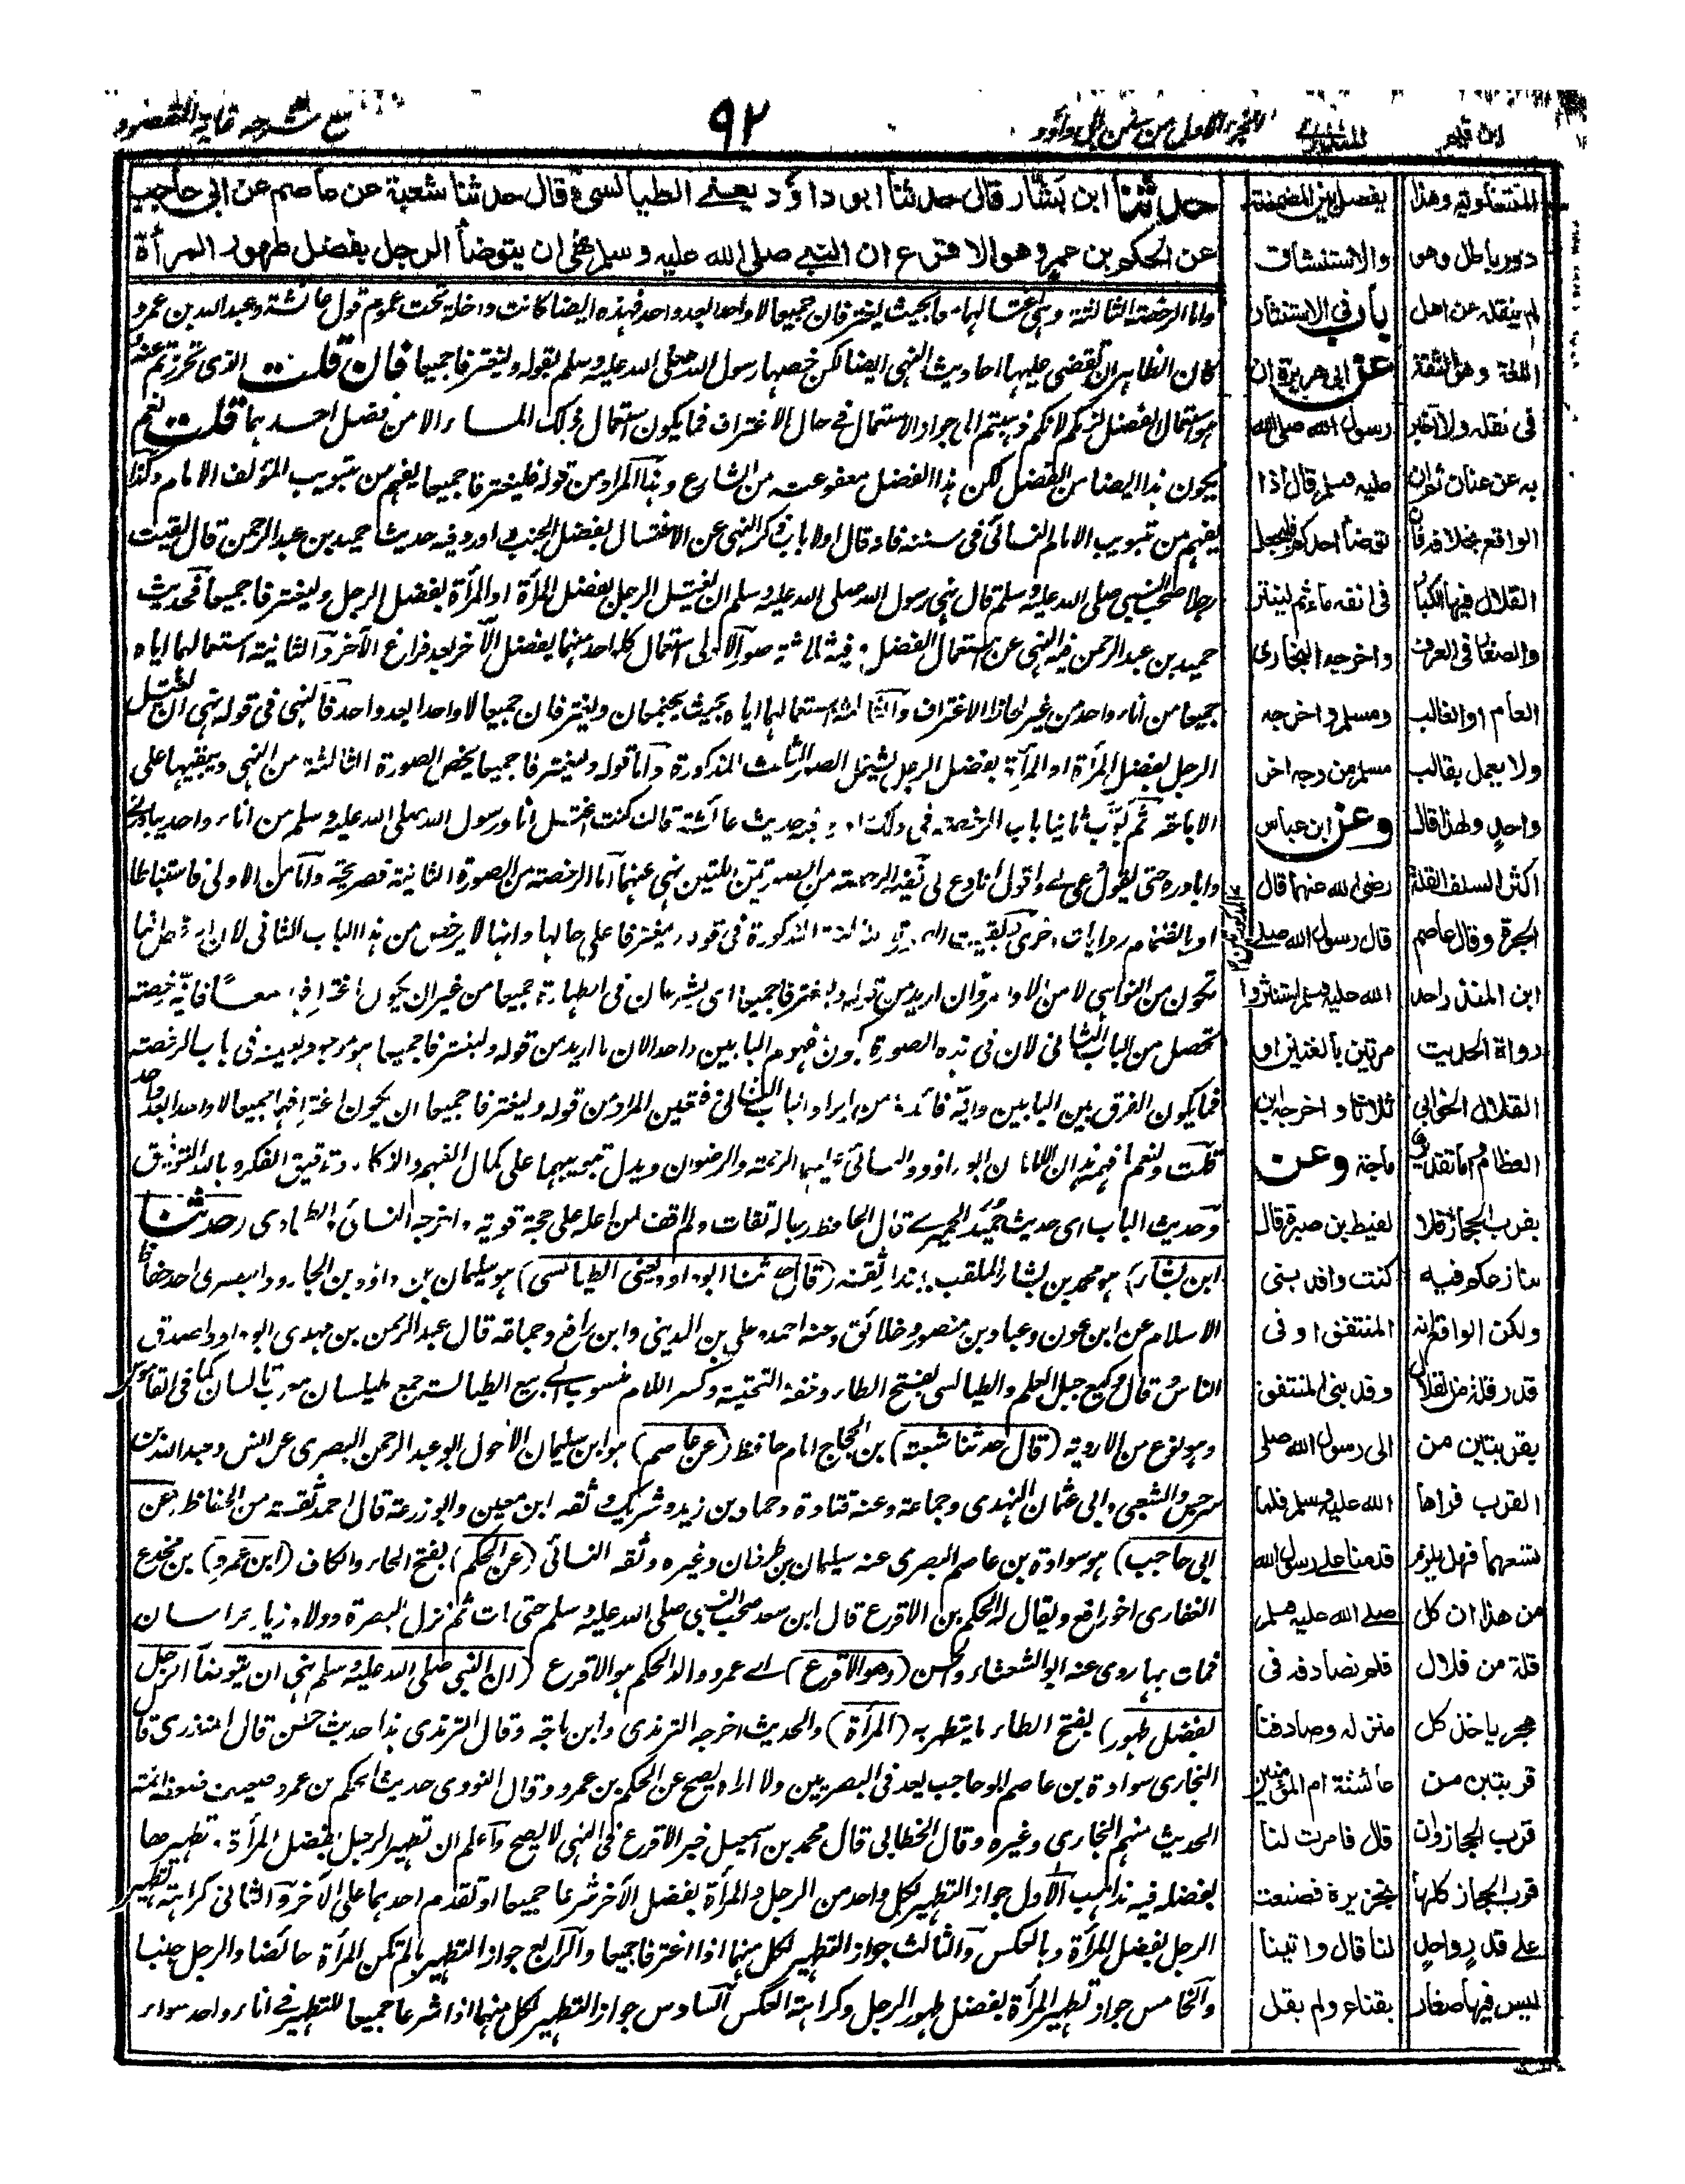 مع شرحه غاية المقصود
٩٢
الجزء الاول من سنن ابى داؤد
للمنذري
ابن قيم
حدثنا ابن بشار قال حدثنا ابو داؤد يعنى الطيالسى قال حدثنا شعبة عن عاصم عن ابى حاجب
عن الحكم بن عمرو وهو الاقرع ان النبى صلى الله عليه وسلم نهى ان يتوضأ الرجل بفضل طهور المرأة
واما الرخصة الثالثة وهى اغتسالهما معا بحيث يغترفان جميعا لا واحد بعد واحد فهذه ايضا كانت داخلة تحت عموم قول عائشة وعبد الله بن عمرو
كان الظاهر ان تقضى عليها احاديث النهى ايضا لكن خصها رسول الله صلى الله عليه وسلم بقوله وليغترفا جميعا فان قلت الذى تحرزتم عنه
هو استعمال الفضل لزمكم لانكم ذهبتم الى جواز الاستعمال فى حال الاغتراف فما يكون استعمال ذلك الماء الا من فضل احدهما قلت نعم
يكون هذا ايضا من الفضل لكن هذا الفضل معفو عنه من الشارع وهذا المراد من قوله فليغترفا جميعا يفهم من تبويب المؤلف الامام وكذا
يفهم من تبويب الامام النسائى فى سننه فانه قال اولا باب ذكر النهى عن الاغتسال بفضل الجنب واورد فيه حديث حميد بن عبد الرحمن قال لقيت
رجلا صحب النبى صلى الله عليه وسلم قال نهى رسول الله صلى الله عليه وسلم ان يغتسل الرجل بفضل المرأة او المرأة بفضل الرجل وليغترفا جميعا فحديث
حميد بن عبد الرحمن فيه النهى عن استعمال الفضل وفيه ثلاثة صور الاولى استعمال كل احد منهما بفضل الآخر بعد فراغ الآخر والثانية استعمالهما اياه
جميعا من اناء واحد من غير لحاظ الاغتراف والثالثة استعمالهما اياه بحيث يجتمعان ويغترفان جميعا لا واحدا بعد واحد فالنهى فى قوله نهى ان يغتسل
الرجل بفضل المرأة او المرأة بفضل الرجل يشمل الصور الثلث المذكورة واما قوله وليغترفا جميعا يخص الصورة الثالثة من النهى ويبقيها على
الاباحة ثم بوّب ثانيا باب الرخصة فى ذلك فيه حديث عائشة قالت كنت اغتسل انا ورسول الله صلى الله عليه وسلم من اناء واحد يبادرنى
وابادره حتى يقول دعى لى واقول انا دع لى ففيه الرخصة من الصورتين اللتين نهى عنهما اما الرخصة من الصورة الثانية فصريحة واما من الاولى فاستنباطا
او بانضمام روايات اخرى المذكورة فى قوله وليغترفا على حالها وانها لا يرخص من هذا الباب الثانى لان
تكون من النواهى لا من الاوامر وان اريد من قوله وليغترفا جميعا اى يشرعان فى الطهارة جميعا من غير ان يكون اغترافهما معا فاية رخصة
تحصل من الباب الثانى لان فى هذه الصورة يكون مفهوم البابين واحدا لان ما اريد من قوله وليغترفا جميعا هو موجود بعينه فى باب الرخصة
فما يكون الفرق بين البابين واية فائدة من ايراد الباب الثانى فتعين المراد من قوله وليغترفا جميعا ان يكون اغترافهما جميعا لا واحدا بعد واحد
قلت ولنعم ما فهم هذان الامامان ابو داؤد والنسائى عليهما الرحمة والرضوان ويدل تبويبهما على كمال الفهم والذكاء وتدقيق الفكر وبالله التوفيق
وحديث الباب اى حديث حُمَيد الحميرى قال الحافظ رجاله ثقات ولم اقف لمن اعله على حجة قوية واخرجه النسائى والطحاوى (حدثنا
ابن بشار) هو محمد بن بشار الملقب ببندار ثقة (قال حدثنا ابو داؤد يعنى الطيالسى) هو سليمان بن داؤد بن الجارود البصرى احد حفاظ
الاسلام عن ابن عون وعباد بن منصور وخلائق وعنه احمد وعلى بن المدينى وابن رافع وجماعة قال عبد الرحمن بن مهدى ابو داود اصدق
الناس وقال وكيع جبل العلم والطيالسى بفتح الطاء وخفة التحتية وكسر اللام منسوب الى بيع الطيالسة جمع طيلسان معرب تالسان كما فى القاموس
وهو نوع من الاردية (قال حدثنا شعبة) بن الحجاج امام حافظ (عن عاصم) هو ابن سليمان الاحول ابو عبد الرحمن البصرى عن انس وعبد الله بن
سرجس والشعبى وابى عثمان النهدى وجماعة وعنه قتادة وحماد بن زيد وشريك وثقه ابن معين وابو زرعة قال احمد ثقة من الحفاظ (عن
ابى حاجب) هو سوادة بن عاصم البصرى عنه سليمان بن طرخان وغيره وثقه النسائى (عن الحكم) بفتح الحاء والكاف (ابن عمرو) بن مجدع
الغفارى اخو رافع ويقال له الحكم بن الاقرع قال ابن سعد صحب النبى صلى الله عليه وسلم حتى مات ثم نزل البصرة وولاه زياد خراسان
فمات بها روى عنه ابو الشعثاء والحسن (وهو الاقرع) اى عمرو والد الحكم هو الاقرع (ان النبى صلى الله عليه وسلم نهى ان يتوضأ الرجل
بفضل طهور) بفتح الطاء ما يتطهر به (المرأة) والحديث اخرجه الترمذى وابن ماجة وقال الترمذى هذا حديث حسن قال المنذرى قال
البخارى سوادة بن عاصم ابو حاجب يعد فى البصريين ولا اراه يصح عن الحكم بن عمرو وقال النووى حديث الحكم بن عمرو ضعيف ضعفه ائمة
الحديث منهم البخارى وغيره وقال الخطابى قال محمد بن اسمعيل خبر الاقرع فى النهى لا يصح واعلم ان تطهير الرجل بفضل المرأة وتطهيرها
بفضله فيه مذاهب الاول جواز التطهير لكل واحد من الرجل والمرأة بفضل الآخر شرعا جميعا او تقدم احدهما على الآخر والثانى كراهة تطهير
الرجل بفضل المرأة وبالعكس والثالث جواز التطهير لكل منهما اذا اغترفا جميعا والرابع جواز التطهير ما لم تكن المرأة حائضا والرجل جنبا
والخامس جواز تطهير المرأة بفضل طهور الرجل وكراهة العكس السادس جواز التطهير لكل منهما اذا شرعا جميعا للتطهير فى اناء واحد سواء
يفصل بين المضمضة
والاستنشاق
باب فى الاستنثار
عن ابى هريرة ان
رسول الله صلى الله
عليه وسلم قال اذا
توضأ احدكم فليجعل
فى انفه ماء ثم لينثر
واخرجه البخارى
ومسلم واخرجه
مسلم من وجه اخر
وعن ابن عباس
رضى الله عنهما قال
قال رسول الله صلى
الله عليه وسلم استنثروا
مرتين بالغتين او
ثلاثا واخرجه ابن
ماجة وعن
لقيط بن صبرة قال
كنت وافد بنى
المنتفق او فى
وفد بنى المنتفق
الى رسول الله صلى
الله عليه وسلم فلما
قدمنا على رسول الله
صلى الله عليه وسلم
فلم نصادفه فى
منزله وصادفنا
عائشة ام المؤمنين
قال فامرت لنا
بخزيرة فصنعت
لنا قال واتينا
بقناع ولم يقل
وهذا
دور باطل وهو
لم ينقله عن اهل
اللغة وهو الثقة
فى نقله ولا اخبر
به عن عنان ثم ان
الواقع بخلافه فان
القلال فيها الكبار
والصغار فى العرف
العام او الغالب
ولا يعمل بقالب
واحد ولهذا قال
اكثر السلف القلة
الجرة وقال عاصم
ابن المنذر احد
رواة الحديث
القلال الخوابى
العظام واما تقديرها
بقرب الحجاز فلا
ننازعكم فيه
ولكن الواقع انه
قدر قلة من القلال
بقربتين من
القرب فرآها
تسعهما فهل يلزم
من هذا ان كل
قلة من قلال
هجر ياخذ كل
قربتين من
قرب الحجاز وان
قرب الحجاز كلها
على قدر واحد
ليس فيها صغار